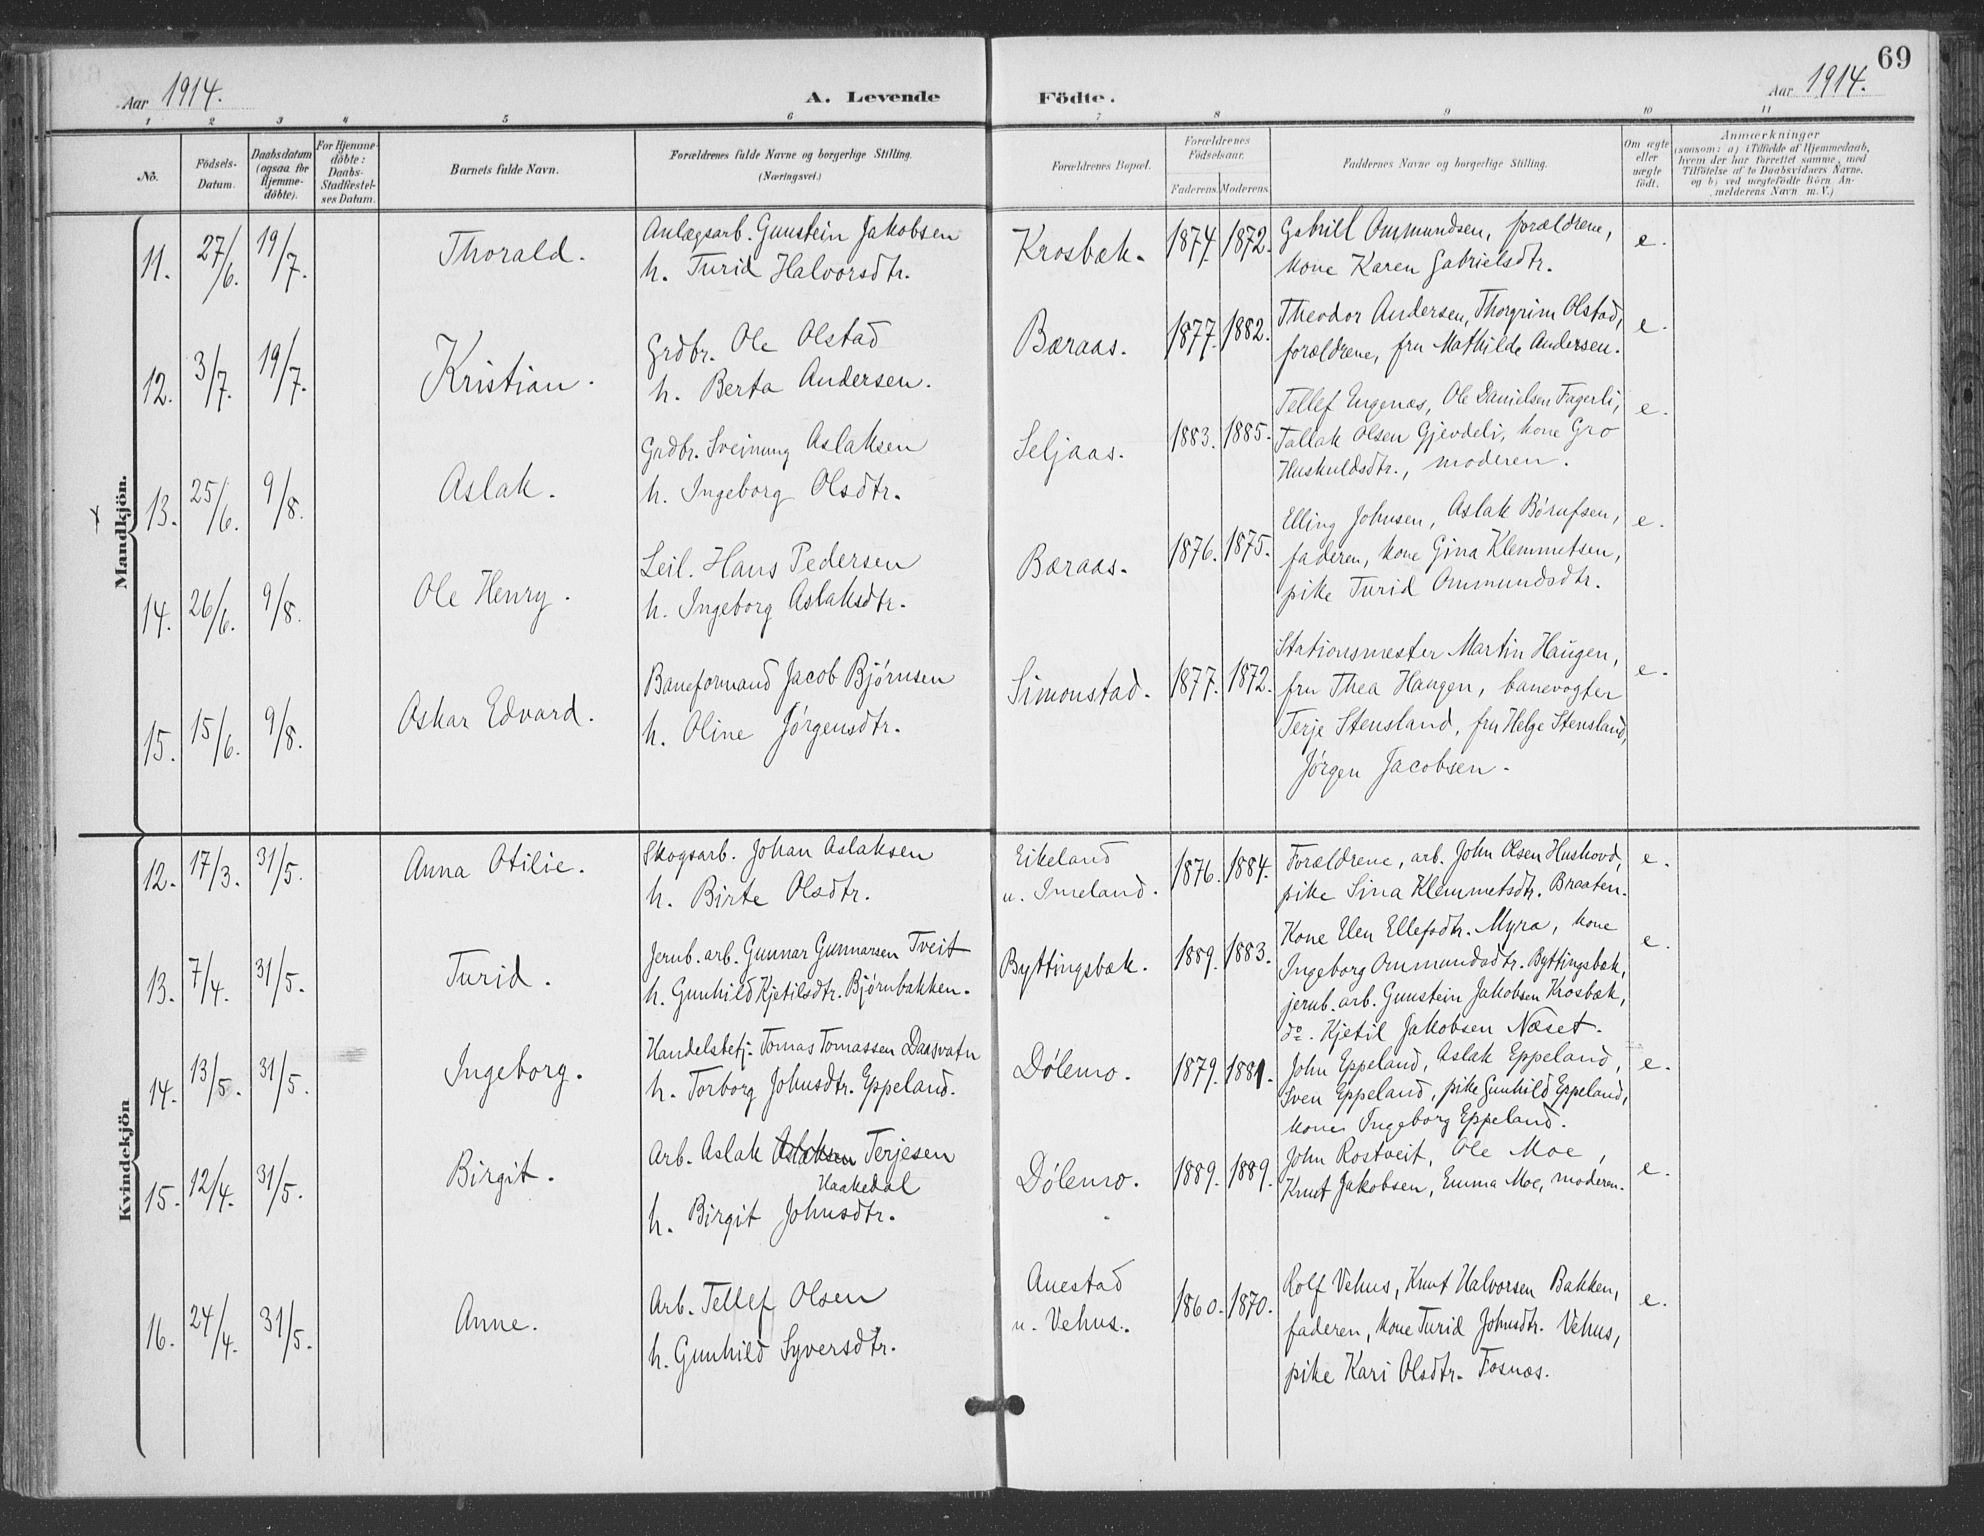 69
Aar 1914. A. Levende Födte. Aar 1914.
1 2 3 4 5 6 7 8 9 10 11
No.
Födsels-Datum.
Daabsdatum (ogsaa for Hjemme-döbte).
For Hjemme-döbte: Daabs-Stadfæstel-ses Datum.
Barnets fulde Navn.
Forældrenes fulde Navne og borgerlige Stilling.
(Næringsvei.)
Forældrenes Bopæl.
Forældrenes Födselsaar.
Faderens. Moderens.
Faddernes Navne og borgerlige Stilling.
Om ægte eller uægte födt.
Anmærkninger
(saasom: a) i Tilfælde af Hjemmedaab,
hvem der har forrettet samme, med
Tilföielse af to Daabsvidners Navne,
og b) ved uægtefödte Börn An-
melderens Navn m. V.)
Mandkjön.
11. 27/6. 19/7. Thorald. Anlægsarb. Gunstein Jakobsen
h. Turid Halvorsdtr.
Krosbæk. 1874. 1872. Gabriel Ommundsen, forældrene,
kone Karen Gabrielsdtr.
e.
12. 3/7. 19/7. Kristian. Grdbr. Ole Olstad
h. Berta Andersen.
Bæraas. 1877. 1882. Theodor Andersen, Thorgrim Olstad,
forældrene, fru Mathilde Andersen.
e.
13. 25/6. 9/8. Aslak. Grdbr. Sveinung Aslaksen
h. Ingeborg Olsdtr.
Seljaas. 1883. 1885. Tellef Engenæs, Ole Danielsen Fagerli,
Tallak Olsen Gjevdeli, kone Gro
Huskuldsdtr., moderen.
e.
14. 26/6. 9/8. Ole Henry. Leil. Hans Pedersen
h. Ingeborg Aslaksdtr.
Bæraas. 1876. 1875. Elling Johnsen, Aslak Børufsen,
faderen, kone Gina Klemmetsen,
pike Turid Ommundsdtr.
e.
15. 15/6. 9/8. Askar Edvard. Baneformand Jacob Bjørnsen
h. Oline Jørgensdtr.
Simonstad. 1877. 1872. Stationsmester Martin Haugen,
fru Thea Haugen, banevogter
Terje Stensland, fru Helge Stensland,
Jørgen Jacobsen.
e.
Kvindekjön
12. 17/3. 31/5. Anna Otilie. Skogsarb. Johan Aslaksen
h. Birte Olsdtr.
Eikeland
u. Imeland.
1876. 1884. Forældrene, arb. John Olsen Huskovd,
pike Sina Klemmetsdtr. Braaten.
e.
13. 7/4. 31/5. Turid. Jernb. arb. Gunnar Gunnarsen Tveit
h. Gunhild Kjetilsdtr. Bjørnbakken.
Byttingsbæk. 1889. 1883. Kone Elen Ellefsdtr. Myra, kone
Ingeborg Ommundsdtr. Byttingsbæk,
jernb. arb. Gunstein Jakobsen Krosbæk,
do. Kjetil Jakobsen Næset.
e.
14. 13/5. 31/5. Ingeborg. Handelsbetj. Tomas Tomassen Daasvatn
h. Torborg Johnsdtr. Eppeland.
Dølemo. 1879. 1881. John Eppeland, Aslak Eppeland,
Sven Eppeland, pike Gunhild Eppeland,
kone Ingeborg Eppeland.
e.
15. 12/4. 31/5. Birgit. Arb. Aslak Aslaksen Terjesen
Haakedal
h. Birgit Johnsdtr.
Dølemo. 1889. 1889. John Rostveit, Ole Moe,
Knut Jakobsen, Emma Moe, moderen.
e.
16. 24/4. 31/5. Anne. Arb. Tellef Olsen
h. Gunhild Syversdtr.
Anestad
u. Vehus.
1860. 1870. Rolf Vehus, Knut Halvorsen Bakken,
faderen, kone Turid Johnsdtr. Vehus,
pike Kari Olsdtr. Fosnæs.
e.